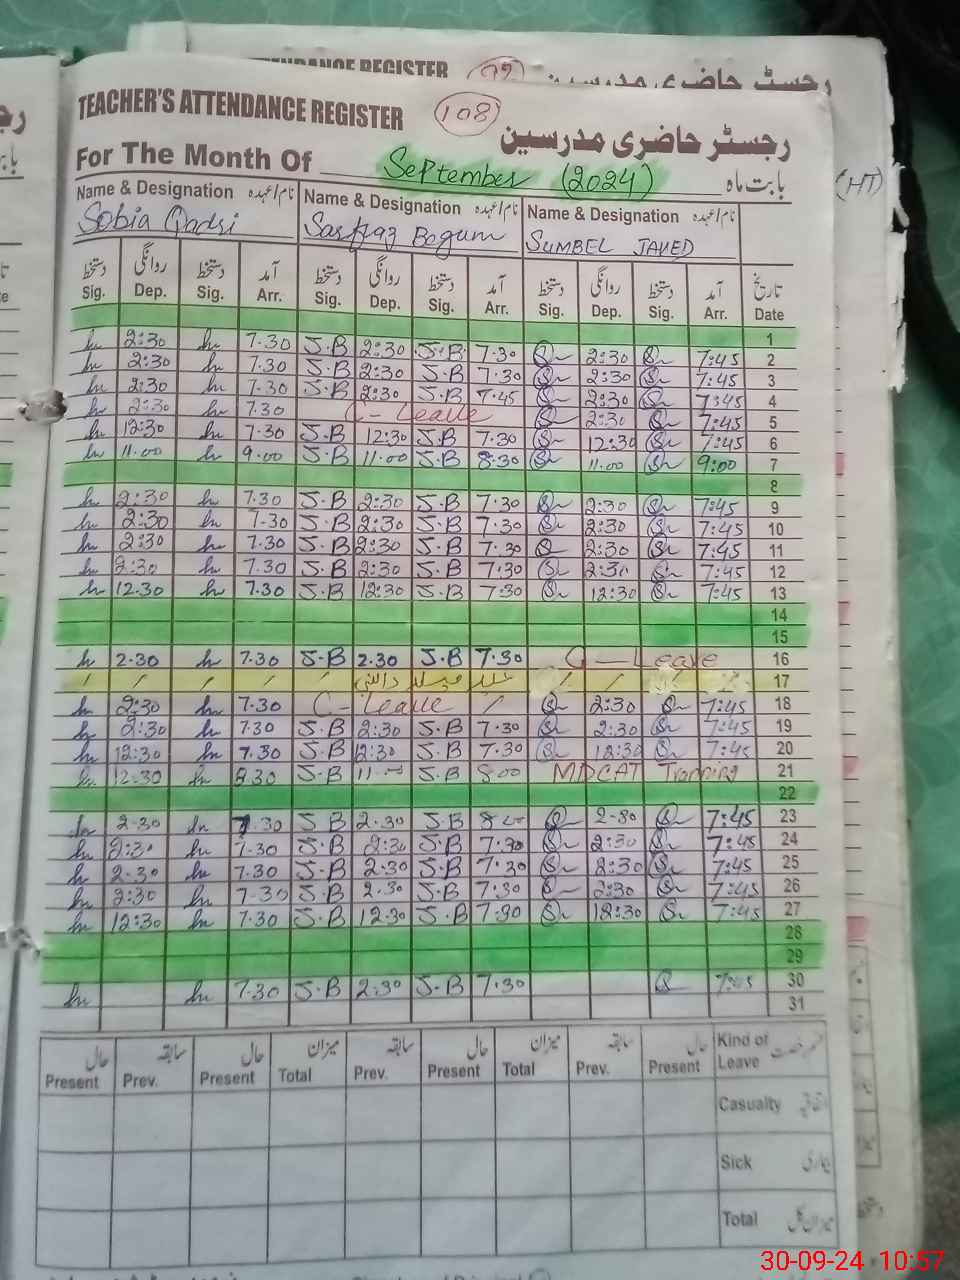 ATTENDANCE REGISTER رجسٹر حاضری مدرسین
TEACHER'S ATTENDANCE REGISTER 108 رجسٹر حاضری مدرسین
For The Month Of September (2024) بابت ماہ
(HT)
Name & Designation نام/عہدہ Name & Designation نام/عہدہ Name & Designation نام/عہدہ
Sobia Qadri Sarfraz Begum SUMBEL JAVED
دستخط روانگی دستخط آمد دستخط روانگی دستخط آمد دستخط روانگی دستخط آمد تاریخ
Sig. Dep. Sig. Arr. Sig. Dep. Sig. Arr. Sig. Dep. Sig. Arr. Date
1
2:30 7.30 S.B 2:30 S.B 7.30 2:30 7:45 2
2:30 7.30 S.B 2:30 S.B 7.30 2:30 7:45 3
2:30 7.30 S.B 2:30 S.B 7.45 2:30 7:45 4
2:30 7.30 C-Leave 2:30 7:45 5
12:30 7.30 S.B 12:30 S.B 7.30 12:30 7:45 6
11.00 9.00 S.B 11.00 S.B 8.30 11.00 9:00 7
8
2:30 7.30 S.B 2:30 S.B 7.30 2:30 7:45 9
2:30 7.30 S.B 2:30 S.B 7.30 2:30 7:45 10
2:30 7.30 S.B 2:30 S.B 7.30 2:30 7:45 11
2:30 7.30 S.B 2:30 S.B 7.30 2:30 7:45 12
12.30 7.30 S.B 12:30 S.B 7.30 12:30 7:45 13
14
15
2.30 7.30 S.B 2.30 S.B 7.30 C-Leave 16
عید میلاد النبی 17
2:30 7.30 C-Leave 2:30 7:45 18
2:30 7.30 S.B 2:30 S.B 7.30 2:30 7:45 19
12:30 7.30 S.B 12:30 S.B 7.30 12:30 7:45 20
12.30 8.30 S.B 11.00 S.B 8.00 MDCAT Training 21
22
2.30 7.30 S.B 2.30 S.B 2.30 7:45 23
2:30 7.30 S.B 2:30 S.B 7.30 2:30 7:45 24
2.30 7.30 S.B 2.30 S.B 7.30 2:30 7:45 25
2:30 7.30 S.B 2.30 S.B 7.30 2:30 7:45 26
12:30 7.30 S.B 12.30 S.B 7.30 12:30 7:45 27
28
29
7.30 S.B 2.30 S.B 7.30 7:45 30
31
حال سابقہ حال میزان سابقہ حال میزان سابقہ حال قسم رخصت
Present Prev. Present Total Prev. Present Total Prev. Present Kind of Leave
Casualty اتفاقیہ
Sick بیماری
Total میزان کل
30-09-24 10:57